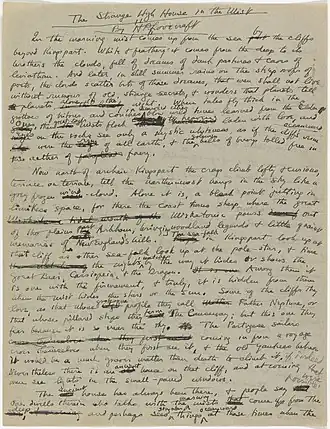 The Strange High House in the Mist
By H P Lovecraft
In the morning mist comes up from the sea by the cliffs
beyond Kingsport. White & feathery it comes from the deep to its
brothers the clouds, full of dreams of dank pastures & caves of
leviathan. And later in still summer rains on the steep roofs of
poets, the clouds scatter bits of those dreams, that men shall not live
without rumour of old, strange secrets, & wonders that planets tell
planets alone in the night. When tales fly thick in the
grottoes of tritons, and conches in seaweed cities blow wild tunes learned from the Elder
Ones, then great eager mists flock to heaven laden with lore, and
on the rocks see only a mystic whiteness, as if the cliff's rim
were the rim of all earth, & the solemn bells of buoys tolled free in
the aether of faery.
Now north of archaic Kingsport the crags climb lofty & curious,
terrace on terrace, till the northernmost hangs in the sky like a
grey frozen wind-cloud. Alone it is, a bleak point jutting in
limitless space, for there the coast turns sharp where the great
Miskatonic pours out
of the plains past Arkham, bringing woodland legends & little quaint
memories of New England's hills. The sea-folk in Kingsport look up at
that cliff as other sea-folk look up at the pole-star, & time
the night's watches by the way it hides or shows the
Great Bear, Cassiopeia, & the Dragon. Among them it
is one with the firmament, & truly, it is hidden from them
when the mist hides the stars or the sun. Some of the cliffs they
love, as that whose grotesque profile they call Father Neptune, or
that whose pillared steps they term The Causeway; but this one they
fear because it is so near the sky. The Portuguese sailors
coming in from a voyage
cross themselves when they first see it, & the old Yankees believe
it would be a much graver matter than death to climb it, if indeed that were possible.
Nevertheless there is an ancient house on that cliff, and at evening
men see lights in the small-paned windows.
The ancient house has always been there, & people say
One dwells therein who talks with the morning mists that come up from the
deep, and perhaps sees things oceanward at those hours when the